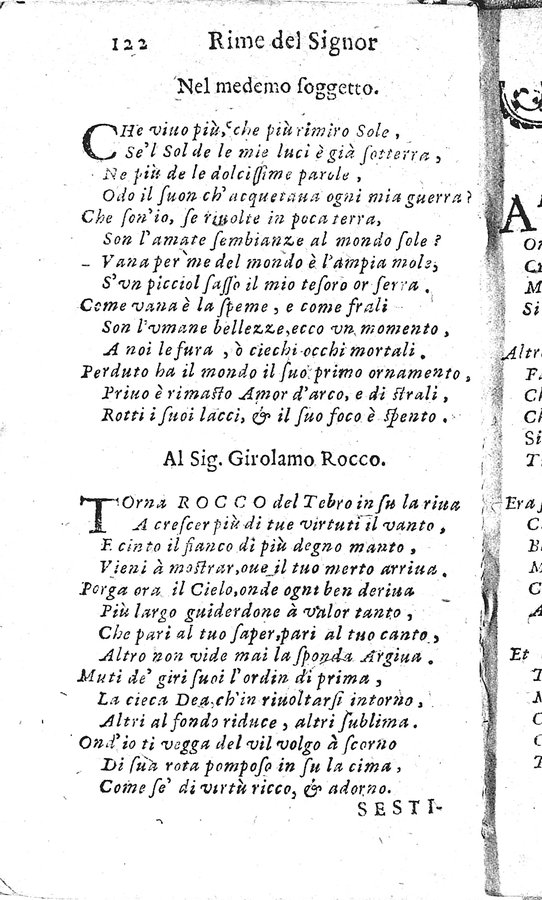 122 Rime del Signor
Nel medemo ſoggetto.
CHe viuo più, che più rimiro Sole,
Se'l Sol de le mie luci è già ſotterra,
Ne più de le dolciſſime parole,
Odo il ſuon ch'acquetaua ogni mia guerra?
Che ſon'io, ſe riuolte in poca terra,
Son l'amate ſembianze al mondo ſole?
Vana per me del mondo è l'ampia mole,
S'vn picciol ſaſſo il mio teſoro or ſerra.
Come vana è la ſpeme, e come frali
Son l'vmane bellezze, ecco vn momento,
A noi le fura, ò ciechi occhi mortali.
Perduto ha il mondo il ſuo primo ornamento,
Priuo è rimaſto Amor d'arco, e di ſtrali,
Rotti i ſuoi lacci, & il ſuo foco è ſpento.
Al Sig. Girolamo Rocco.
TOrna ROCCO del Tebro in ſu la riua
A creſcer più di tue virtuti il vanto,
E cinto il fianco di più degno manto,
Vieni à moſtrar, oue il tuo merto arriua.
Porga ora il Cielo, onde ogni ben deriua
Più largo guiderdone à valor tanto,
Che pari al tuo ſaper, pari al tuo canto,
Altro non vide mai la ſponda Argiua.
Muti de' giri ſuoi l'ordin di prima,
La cieca Dea, ch'in riuoltarſi intorno,
Altri al fondo riduce, altri ſublima.
Ond'io ti vegga del vil volgo à ſcorno
Di ſua rota pompoſo in ſu la cima,
Come ſe' di virtù ricco, & adorno.
SESTI-
A
On
M
Si
Altre
Ch
Ch
Si
Era
Et